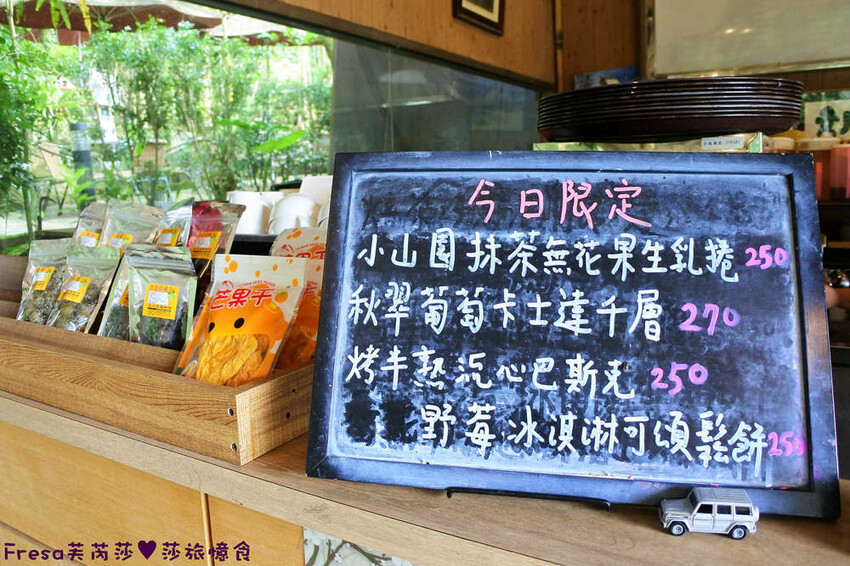 今日限定
小山園抹茶無花果生乳捲250
秋翠葡萄卡士達千層 270
烤半熟流心巴斯克 250
野莓冰淇淋可頌鬆餅250
芒果干
Fresa芙芮莎♥莎旅憶食